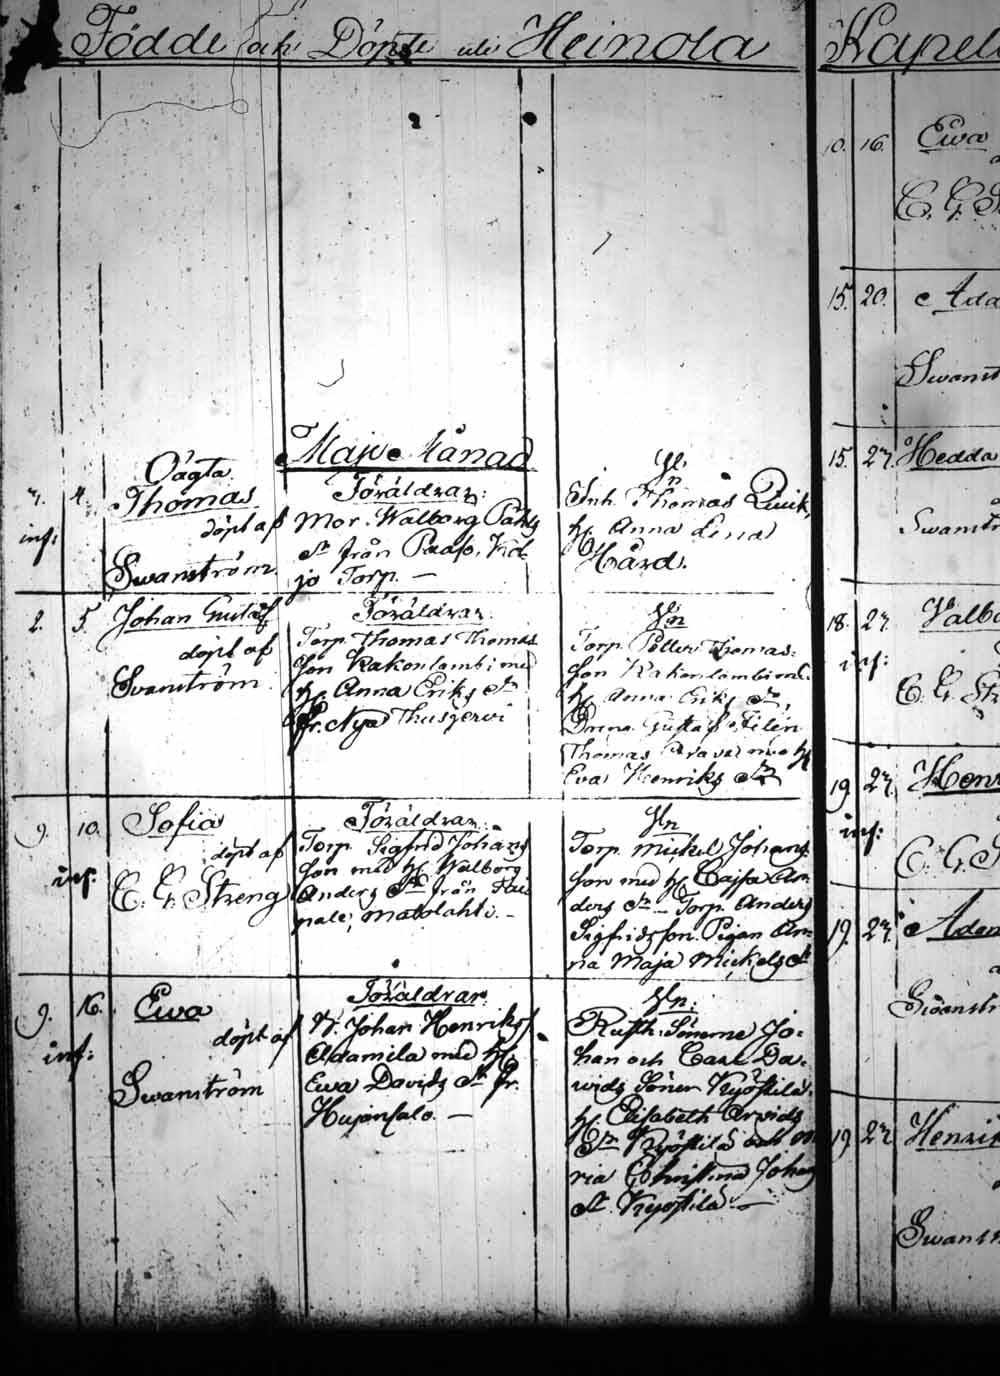 Födde och Döpte uti Heinola
Kapel
Maji Månad
Oägta
4.
inf:
Thomas
döpt af
Swanström
Föräldrar:
Mor. Walborg Påhls
dr från Paaso,
jo Torp. —
Inh. Thomas Qwick,
h. Anna Lena
Hård.
2. 5. Johan Gustaf
döpt af
Svanström
Föräldrar
Torp. Thomas Thomas
son Kakonlambi med
h. Anna Eriks dr
fr. Nya
Torp. Petter Thomas
son Kakonlambi med
h. Anna Eriks dr,
Gustaf
Thomas med h.
Eva Henriks dr
9. 10.
inf:
Sofia
döpt af
C. G. Streng
Föräldrar
Torp. Sigfrid Johans
son med h. Walborg
Anders dr från Tai
pale, Matolahti. —
Fn.
Torp. Michel Johans
son med h. Caisa An
ders dr — Torp. Anders
Sigfridsson. Pigan An
na Maja Mickels dr
9. 16.
inf:
Ewa
döpt af
Swanström
Föräldrar
Johan Henriks
Adamila med h.
Ewa Davids dr fr.
Hujansalo. —
Fn.
Rusth. Sönerne Jo-
han och Carl Da-
vids Söner Kyöstilä,
h. Elisabeth Arvids
dr Kyöstilä och Ma
ria Christina Johans
dr Kyöstilä —
10. 16. Ewa
C. G. S
15. 20. Ada
Swanst
15. 27. Hedda
Swanstr
18. 27.
inf:
Valbo
C. G. St
19. 27.
inf:
Henr
C. G. S
19. 27. Adam
Swanstr
19. 27. Henrik
Swanst